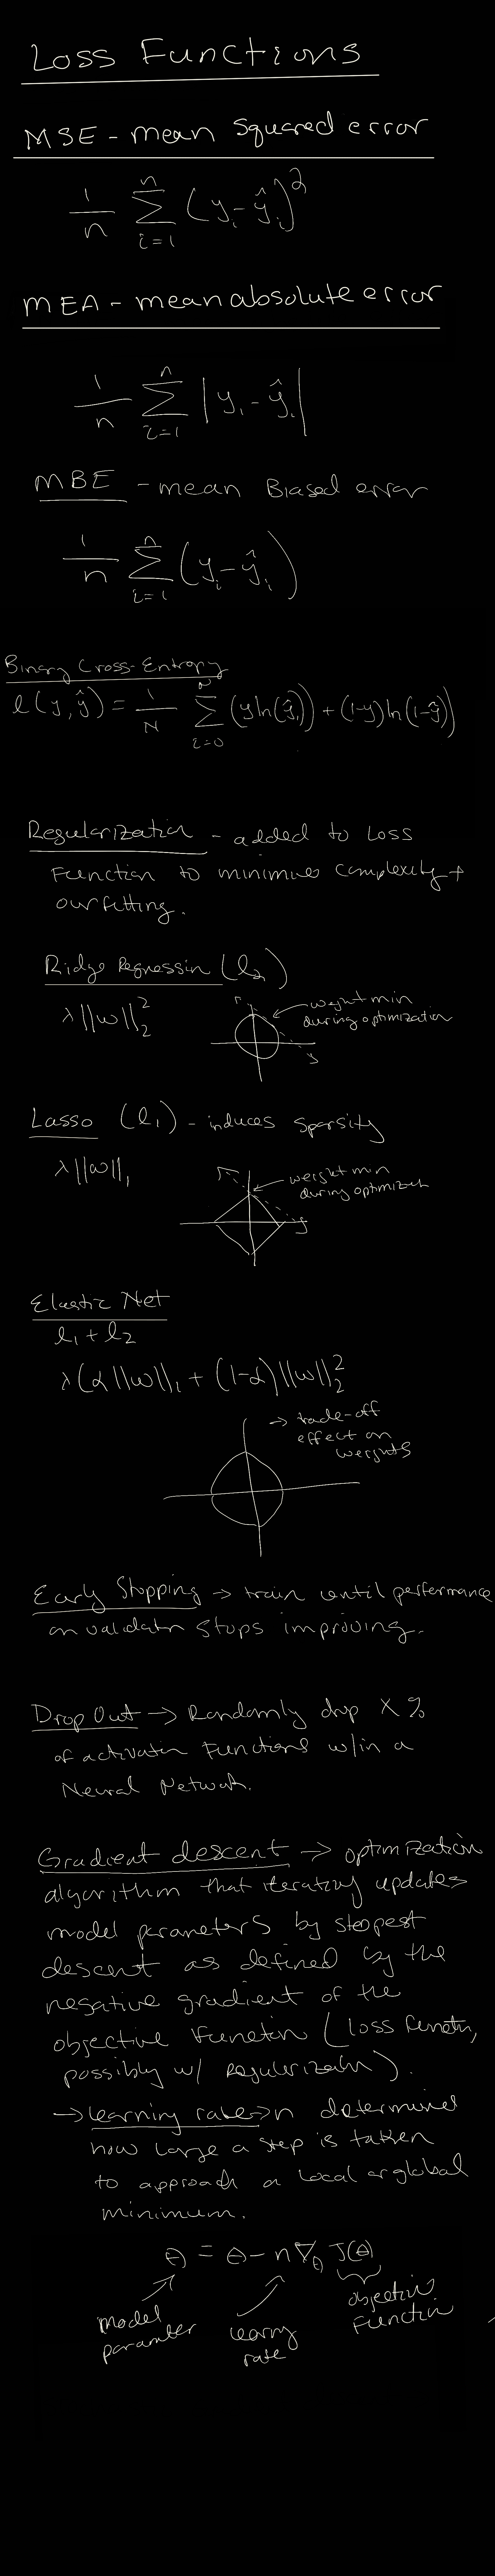 Loss Functions
MSE - mean squared error
1/n Σ_{i=1}^{n} (y_i - ŷ_i)^2
MEA - mean absolute error
1/n Σ_{i=1}^{n} |y_i - ŷ_i|
MBE - mean Biased error
1/n Σ_{i=1}^{n} (y_i - ŷ_i)
Binary Cross-Entropy
l(y, ŷ) = 1/N Σ_{i=0}^{N} (y ln(ŷ_i)) + (1-y) ln(1-ŷ))
Regularization - added to Loss
Function to minimize complexity +
overfitting.
Ridge Regression (l_2)
λ||w||_2^2
weight min
during optimization
Lasso (l_1) - induces sparsity
λ||w||_1
weight min
during optimization
Elastic Net
l_1 + l_2
λ(α||w||_1 + (1-α)||w||_2^2
→ trade-off
effect on
weights
Early Stopping → train until performance
on validation stops improving.
Drop Out → Randomly drop X %
of activation Functions w/in a
Neural Network.
Gradient descent → optimization
algorithm that iterativly updates
model parameters by steepest
descent as defined by the
negative gradient of the
objective Function (loss function,
possibly w/ regularization).
→ learning rate → n determines
how large a step is taken
to approach a local or global
minimum.
θ = θ - n∇_θ J(θ)
model
parameter
learning
rate
objective
Function